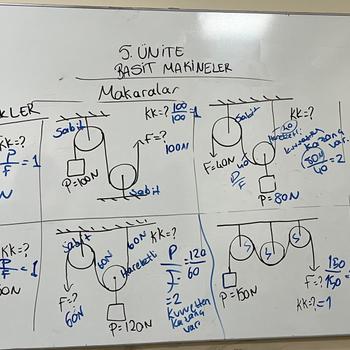 5. ÜNİTE
BASİT MAKİNELER
Makaralar
KLER
KK=?
P/F = 1
N
Sabit
KK=? 100/100 = 1
F=?
100N
P=100N
Sabit
Sabit
40
Hareketli
KK=?
Kuvvetten
Kazanç
var
80N/40 = 2
F=40N
P/F
P=80N
KK=?
P/F = 1
0N
Sabit
60N
60N
KK=?
Hareketli
P/F = 120/60
=2
Kuvvetten
Kazanç
var.
F=?
60N
P=120N
S
S
S
P=150N
F=?
150/150 =
KK=?=1